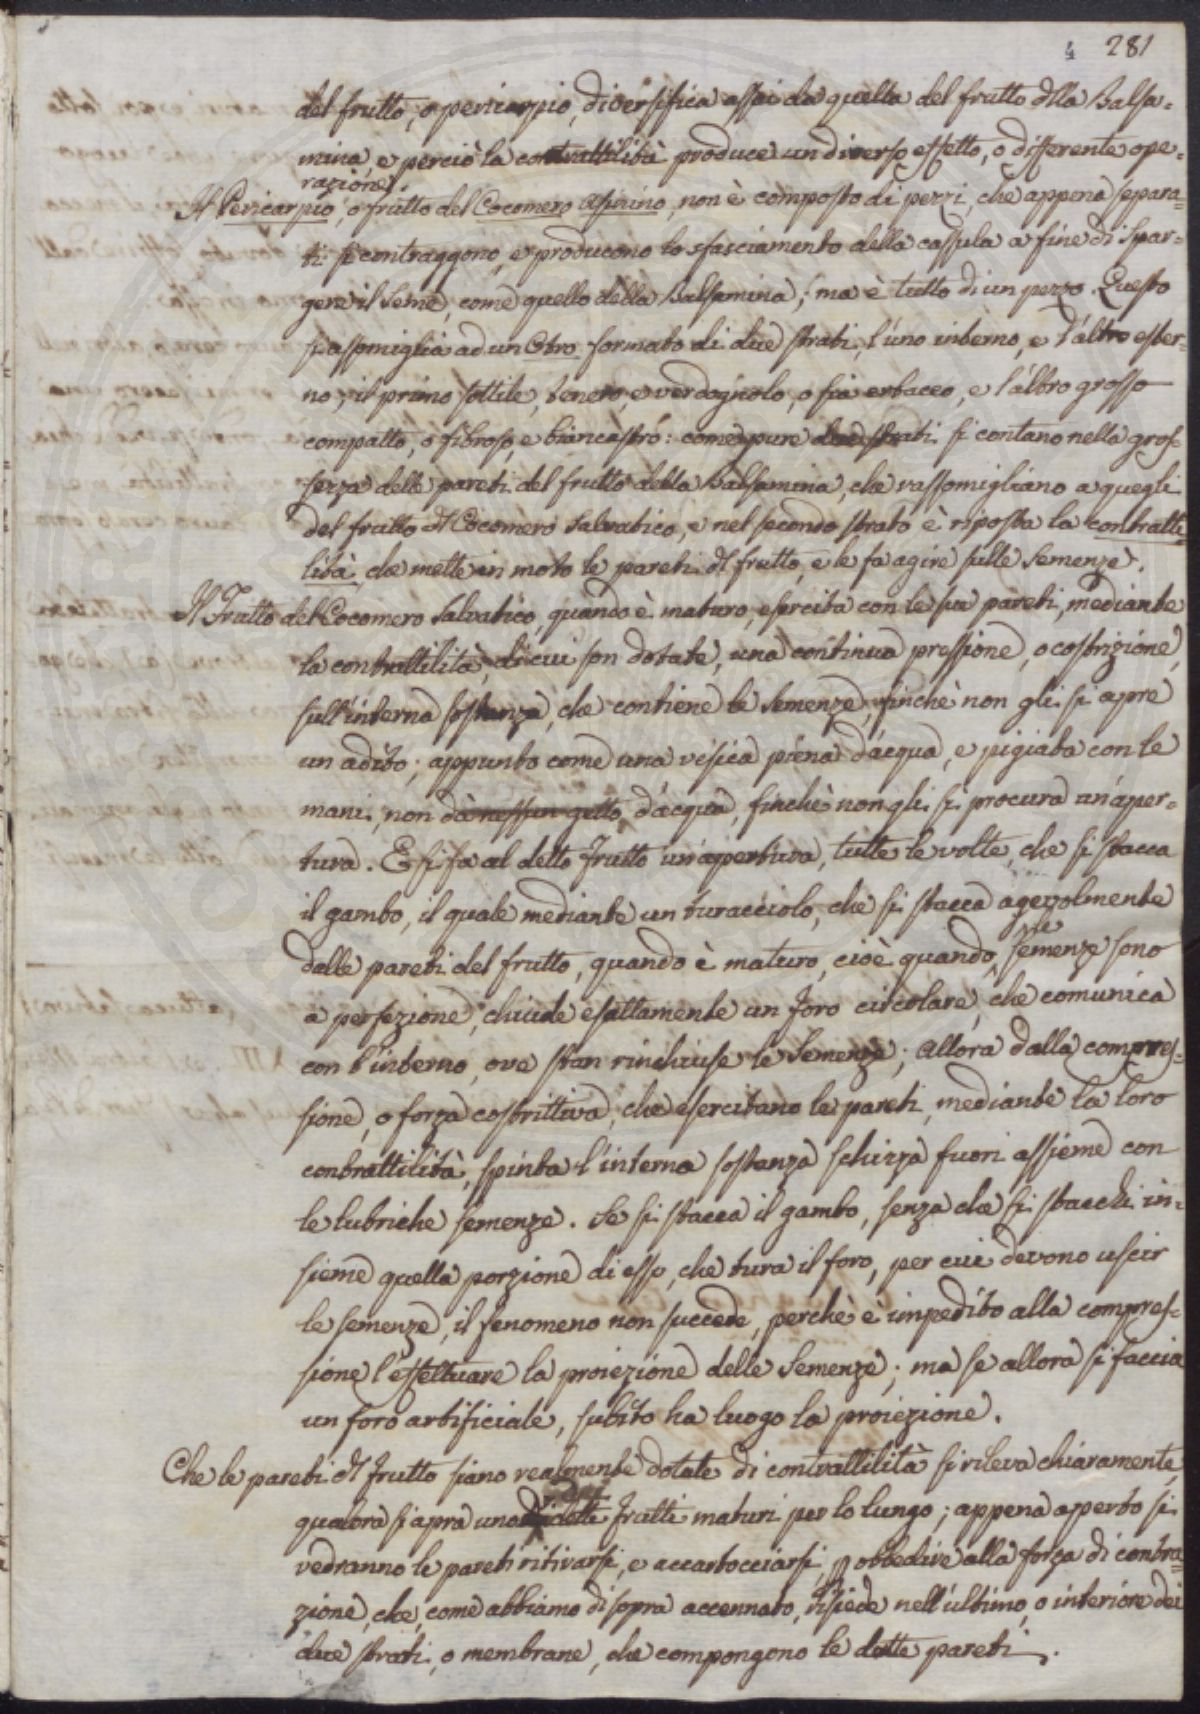 4 281
del frutto, o pericarpio, diversifica assai da quella del frutto dlla Balsa-
mina, e perciò la contrattilità produce un diverso effetto, o differente ope-
razione.
Il Pericarpio, o frutto del Cocomero asinino, non è composto di pezzi, che appena separa-
ti si contraggono, e producono lo sfasciamento della cassula a fine di spar-
gere il seme, come quello della Balsamina; ma è tutto di un pezzo. Questo
si assomiglia ad un Otro formato di due strati, l'uno interno, e l'altro ester-
no; il primo sottile, tenero, e verdognolo, o sia erbaceo, e l'altro grosso
compatto, o fibroso, e biancastro: come pure due strati si contano nella gros-
sezza delle pareti del frutto della Balsamina, che rassomigliano a quegli
del frutto dl Cocomero salvatico, e nel secondo strato è riposta la contratti-
lità, che mette in moto le pareti dl frutto, e le fa agire sulle semenze.
Il Frutto del Cocomero salvatico, quando è maturo, esercita con le sue pareti, mediante
la contrattilità, di cui son dotate, una continua pressione, o costrizione,
sull'interna sostanza, che contiene le semenze, finchè non gli si apre
un adito; appunto come una vesica piena d'acqua, e pigiata con le
mani, non dà nessun getto d'acqua, finchè non gli si procura un'aper-
tura. E si fa al detto frutto un'apertura, tutte le volte, che si stacca
il gambo, il quale mediante un turacciolo, che si stacca agevolmente
dalle pareti del frutto, quando è maturo, cioè quando le semenze sono
a perfezione, chiude esattamente un foro circolare, che comunica
con l'interno, ove stan rinchiuse le semenze; allora dalla compres-
sione, o forza costrittiva, che esercitano le pareti, mediante la loro
contrattilità, spinta l'interna sostanza schizza fuori assieme con
le lubriche semenze. Se si stacca il gambo, senza che si stacchi in-
sieme quella porzione di esso, che tura il foro, per cui devono uscir
le semenze, il fenomeno non succede, perchè è impedito alla compres-
sione l'effettuare la proiezione delle semenze; ma se allora si faccia
un foro artificiale, subito ha luogo la proiezione.
Che le pareti dl frutto siano realmente dotate di contrattilità si rileva chiaramente,
qualora si apra uno detti frutti maturi per lo lungo; appena aperto si
vedranno le pareti ritirarsi, e accartocciarsi, p obbedire alla forza di contra-
zione, che, come abbiamo di sopra accennato, risiede nell'ultimo, o interiore dei
due strati, o membrane, che compongono le dette pareti.